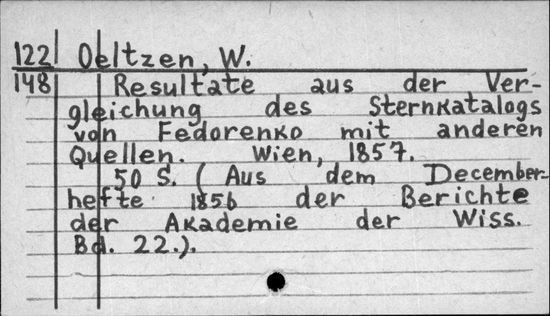 122 Oeltzen, W.
148 Resultate aus der Ver-
gleichung des Sternkatalogs
von Fedorenko mit anderen
Quellen. Wien, 1857.
50 S. (Aus dem December-
hefte 1856 der Berichte
der Akademie der Wiss.
Bd. 22.).